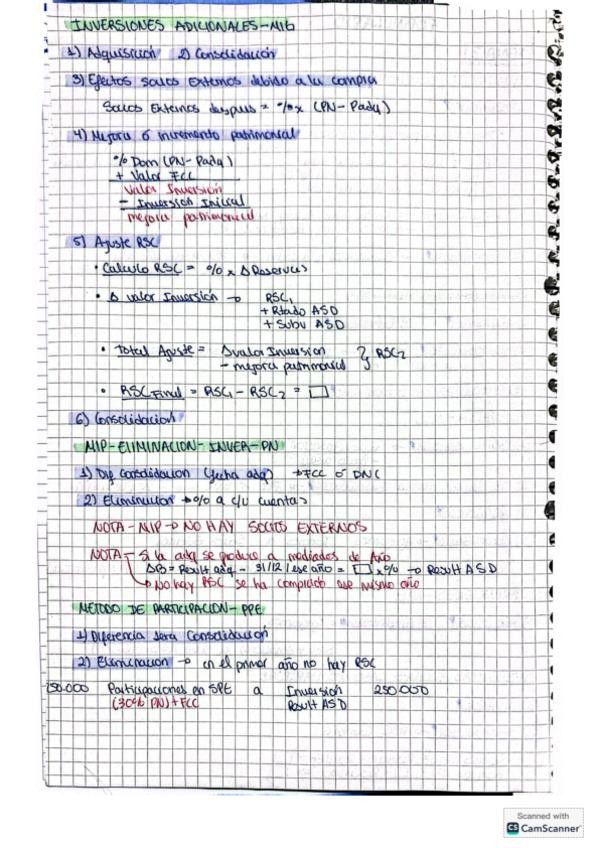 INVERSIONES ADICIONALES - MIG
1) Adquisición 2) Consolidación
3) Efectos socios externos debido a la compra
Socios Externos despues = % x (PN - Pada)
4) Mejora ó incremento patrimonial
% Dom (PN - Pada)
+ Valor FCC
Valor Inversión
- Inversión Inicial
mejora patrimonial
5) Ajuste RSC
• Calculo RSC = % x Δ Reservas
• Δ valor Inversión → RSC1
+ Rtado ASD
+ Subv ASD
• Total Ajuste = Δ valor Inversion } RSC2
- mejora patrimonial
• RSC Final = RSC1 - RSC2 = □
6) Consolidacion
MIP - ELIMINACION - INVER - PN
1) Dif Consolidacion (fecha adq) → FCC ó DNC
2) Eliminacion → % a c/u cuentas
NOTA - MIP → NO HAY SOCIOS EXTERNOS
NOTA - Si la adq se produce a mediados de Año
ΔB = Result adq - 31/12/ese año = □ x % → Result ASD
↳ No hay RSC se ha comprado ese mismo año
METODO DE PARTICIPACION - PPE
1) Diferencia sera Consolidación
2) Eliminacion → en el primer año no hay RSC
250.000 Participaciones en SPE a Inversión 250.000
(30% PN) + FCC Result ASD
Scanned with
CS CamScanner